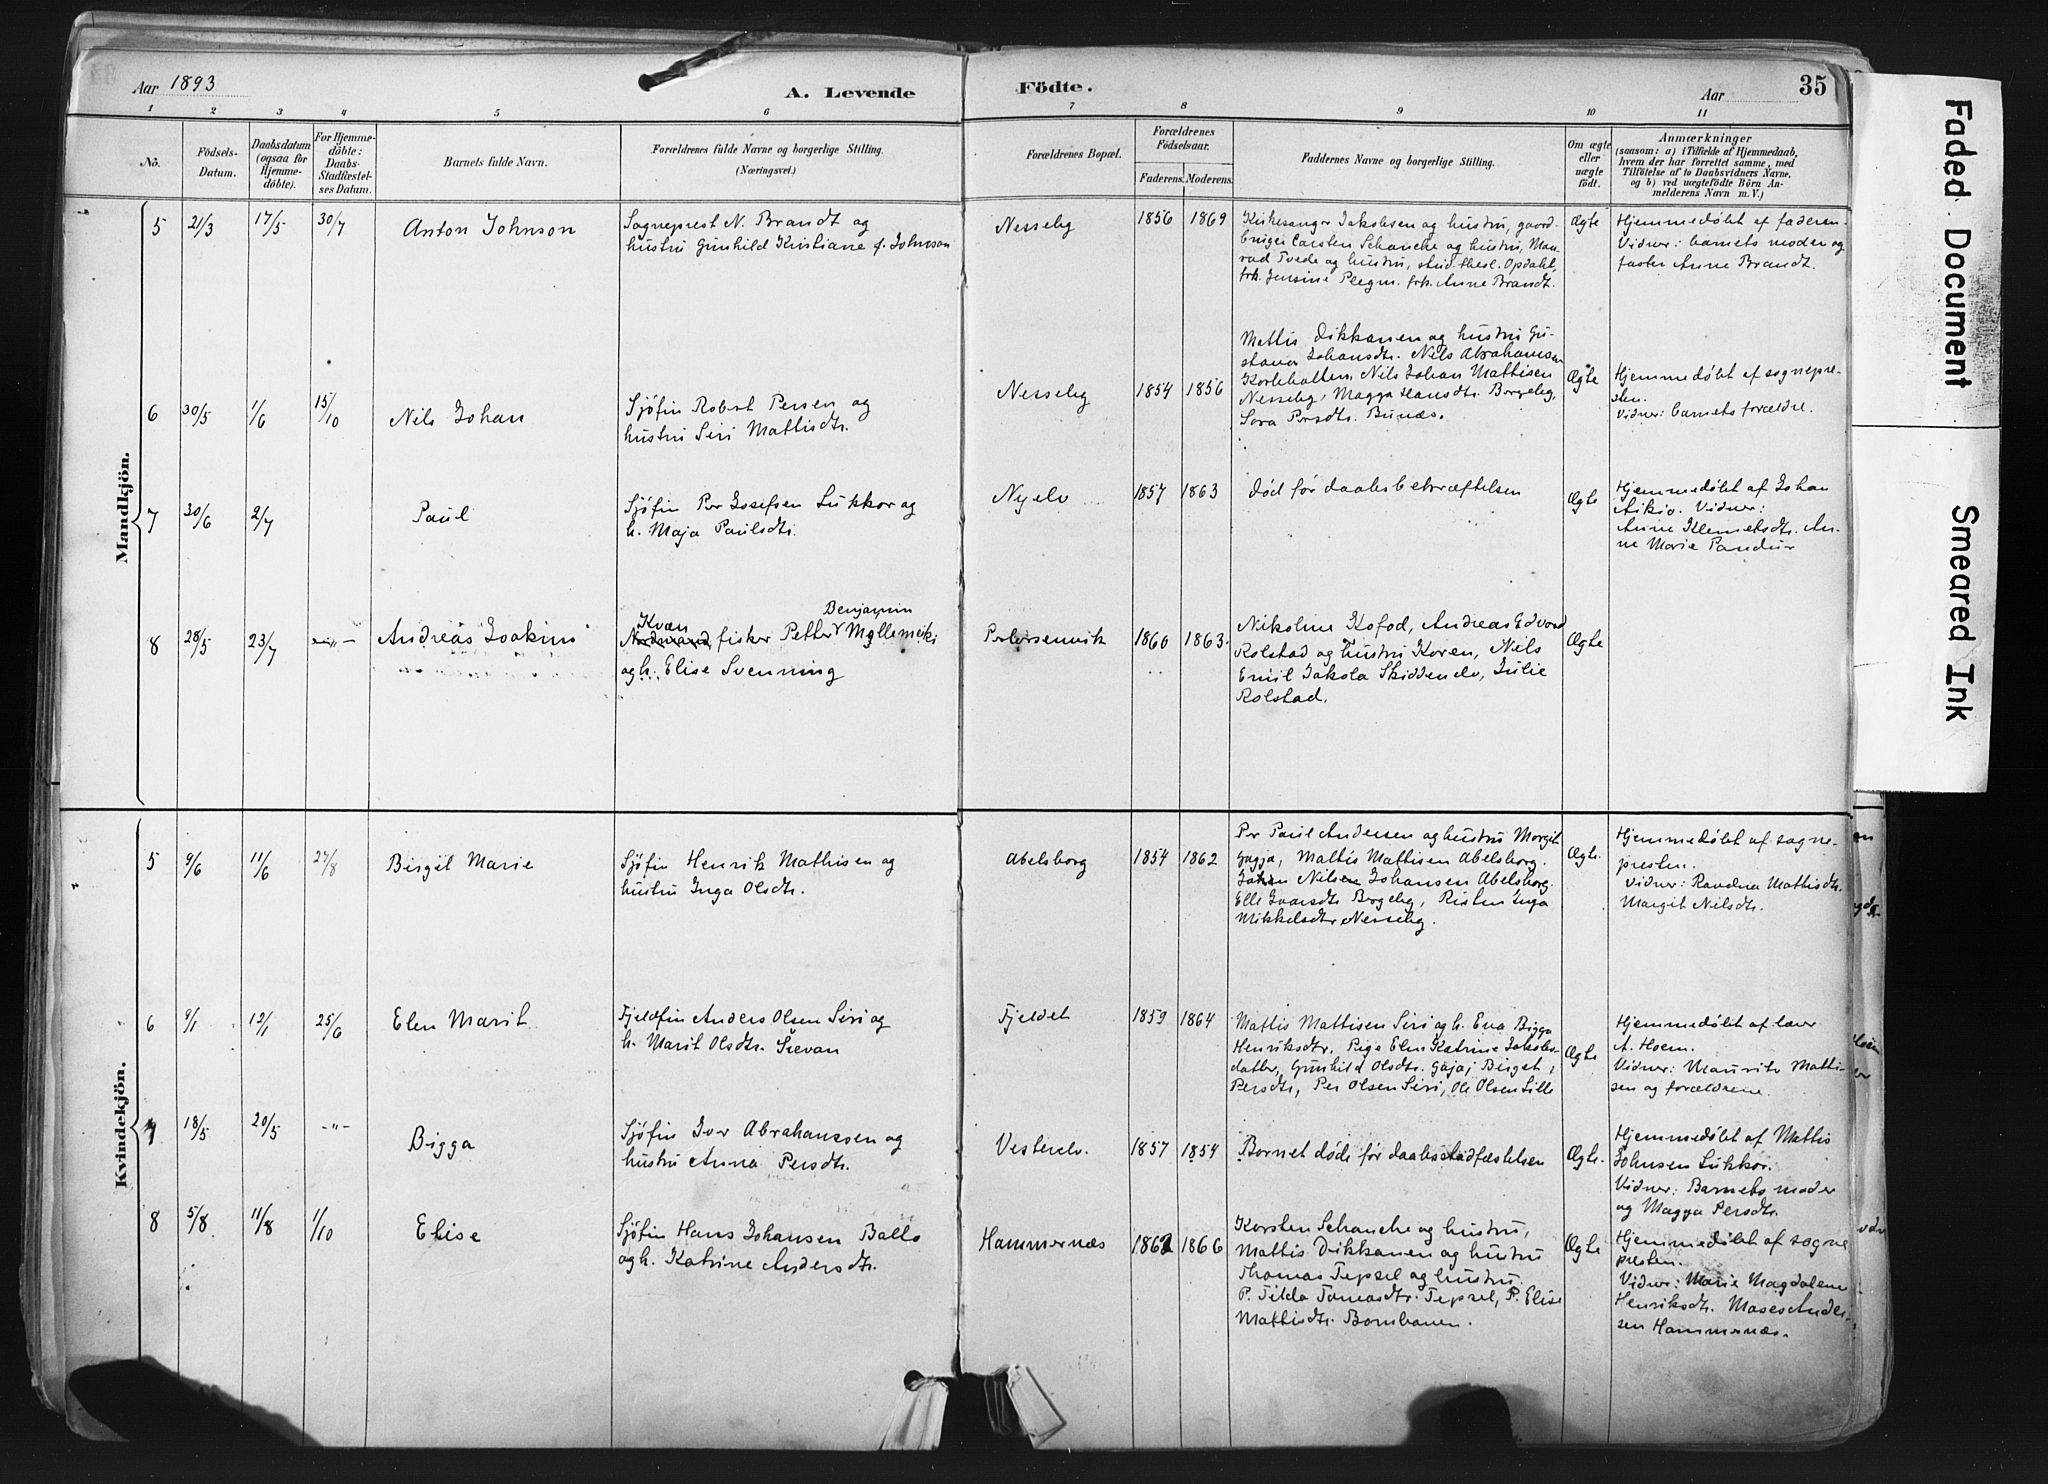 Aar 1893
A. Levende
Födte.
Aar
35
1 2 3 4 5 6 7 8 9 10 11
No.
Födsels-
Datum.
Daabsdatum
(ogsaa for
Hjemme-
döbte).
For Hjemme-
döbte:
Daabs-
Stadfæstel-
ses Datum.
Barnets fulde Navn.
Forældrenes fulde Navne og borgerlige Stilling.
(Næringsvei.)
Forældrenes Bopæl.
Forældrenes
Födselsaar.
Faderens. Moderens.
Faddernes Navne og borgerlige Stilling.
Om ægte
eller
uægte
födt.
Anmærkninger
(saasom: a) i Tilfælde af Hjemmedaab,
hvem der har forrettet samme, med
Tilföielse af to Daabsvidners Navne,
og b) ved uægtefödte Börn An-
melderens Navn m. V.)
Mandkjön.
5 21/3 17/5 30/7 Anton Johnson
Sogneprest N. Brandt og
hustru Gunhild Kristiane f. Johnson
Nesseby 1856 1869
Kirkesanger Jakobsen og hustru, gaard-
bruger Carsten Schanche og hustru, Mon-
rad Tvede og hustru, stud. theol. Opdahl,
frk. Jensine Plegm. frk. Anne Brandt.
Ægte
Hjemmedøbt af faderen
Vidner: barnets moder og
faster Anne Brandt.
6 30/5 1/6 15/10 Nils Johan
Sjøfin Robert Persen og
hustru Siri Mattisdtr.
Nesseby 1854 1856
Mattis Dikkanen og hustru Gu-
stava Johansdtr. Nils Abrahamsen
Korteholten, Nils Johan Mattisen
Nesseby, Magga Hansdtr. Borgeby,
Sara Persdtr. Bunæs.
Ægte
Hjemmedøbt af sognepre-
sten.
Vidner: barnets forældre.
7 30/6 2/7 Paul
Sjøfin Per Josefsen Lukkar og
h. Maja Paulsdtr.
Nyelv 1857 1863
død før daabsbekræftelsen
Ægte
Hjemmedøbt af Johan
Aikio. Vidner:
Anne Klemetsdtr. An-
ne Marie Pandur
8 28/5 23/7 -"- Andreas Joakim
Kvæn Benjamin
Nordmand, fisker Petter Møllemiki
og h. Elise Svenning
Petersenvik 1860 1863.
Nikoline Kofod, Andreas Edvard
Rolstad og hustru Karen, Nils
Emil Jakola Skiddenelv, Julie
Rolstad.
Ægte
Kvindekjön.
5 9/6 11/6 27/8 Birgit Marie
Sjøfin Henrik Mathisen og
hustru Inga Olsdtr.
Abelsborg 1854 1862
Per Paul Andersen og hustru Margit
Gagja, Mattis Mattisen Abelsborg.
Johan Nilsen Johansen Abelsborg.
Elle Ivarsdtr Bergeby, Risten Inga
Mikkelsdtr Nesseby.
Ægte.
Hjemmedøbt af sogne-
presten.
Vidner: Ravdna Mathisdtr.
Margit Nilsdtr.
6 9/1 12/1 25/6 Elen Marit
Fjeldfin Anders Olsen Siri og
h. Marit Olsdtr. Sievan
Fjeldet 1859 1864
Mattis Mattisen Siri og h. Eva Bigga
Henriksdtr, Pige Elen Katrine Jakobs-
datter, Gunhild Olsdtr. Gaja, Birget
Persdtr, Per Olsen Siri, Ole Olsen Lille
Ægte
Hjemmedøbt af lærer
A. Hoem.
Vidner: Mauritz Matti-
sen og forældrene.
7 18/5 20/5 -"- Bigga
Sjøfin Iver Abrahamsen og
hustru Anna Persdtr.
Vesterelv. 1857 1854
Barnet døde før daabsstadfæstelsen
Ægte.
Hjemmedøbt af Mattis
Johnsen Lukkar.
Vidner: Barnets moder
og Magga Persdtr.
8 5/8 11/8 1/10 Elise
Sjøfin Hans Johansen Ballo
og h. Katrine Andersdtr.
Hammernæs 1862 1866
Karsten Schanche og hustru,
Mattis Dikkanen og hustru
Thomas Tepsel og hustru
P. Tilda Tomasdtr. Tepsel, P. Elise
Mattisdtr. Bombanen.
Ægte
Hjemmedøbt af sogne
presten.
Vidner: Marie Magdalene
Henriksdtr. Moses Ander-
sen Hammernæs.
Faded Document
Smeared Ink